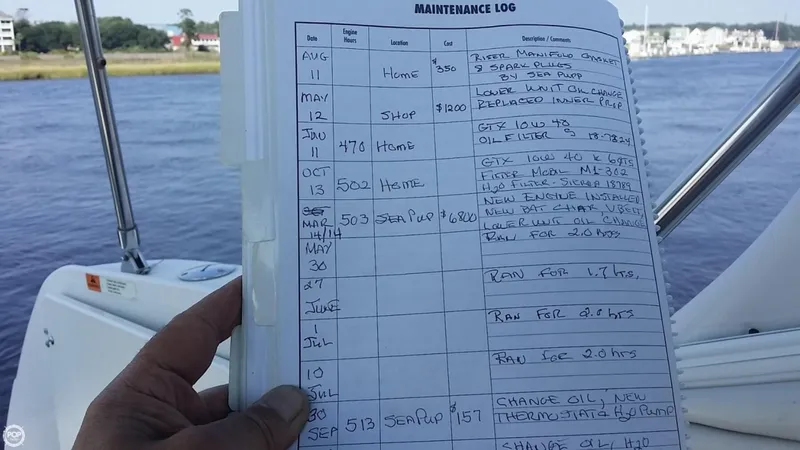 MAINTENANCE LOG
Date Engine Hours Location Cost Description / Comments
AUG 11 HOME $350 RISER MANIFOLD GASKET
8 SPARK PLUGS
BY SEA PUP
MAY 12 SHOP $1200 LOWER UNIT OIL CHANGE
REPLACED INNER PROP
JAN 11 470 HOME GTX 10W 40
OIL FILTER 18-7824
OCT 13 502 HOME GTX 10W 40 6 QTS
FILTER MOBIL M1-302
H2O FILTER - SIERRA 18789
MAR 14/14 503 SEA PUP $6800 NEW ENGINE INSTALLED
NEW BAT CHAR V BELT,
LOWER UNIT OIL CHANGE
MAY 30 RAN FOR 2.0 HRS
27 JUNE RAN FOR 1.7 hrs,
1 JUL RAN FOR 2.0 hrs
10 JUL RAN FOR 2.0 hrs
30 SEP 513 SEA PUP $157 CHANGE OIL, NEW
THERMOSTAT & H2O PUMP
CHANGE OIL, H2O
POP